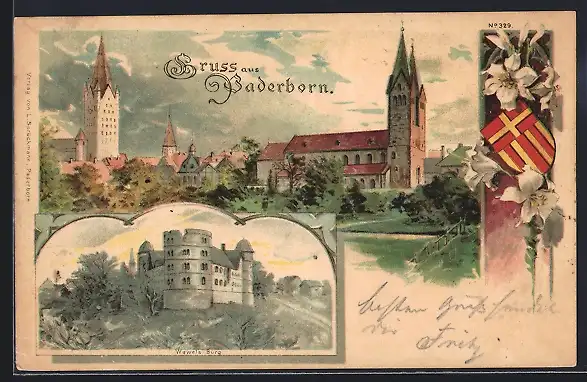 No 329.
Gruss aus
Paderborn.
Verlag von
Paderborn.
Wewels Burg
besten Gruß sendet
Dir
Fritz